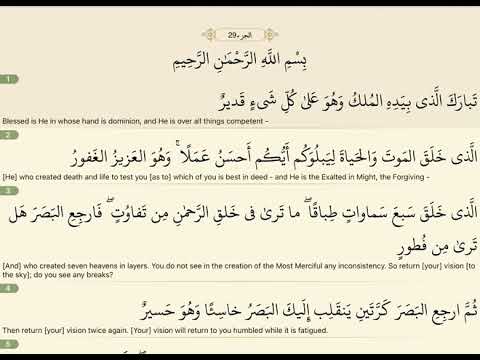 الجزء29
بِسْمِ اللَّهِ الرَّحْمَٰنِ الرَّحِيمِ
1
تَبارَكَ الَّذى بِيَدِهِ المُلكُ وَهُوَ عَلىٰ كُلِّ شَىءٍ قَديرٌ
Blessed is He in whose hand is dominion, and He is over all things competent -
2
الَّذى خَلَقَ المَوتَ وَالحَياةَ لِيَبلُوَكُم أَيُّكُم أَحسَنُ عَمَلًا ۚ وَهُوَ العَزيزُ الغَفورُ
[He] who created death and life to test you [as to] which of you is best in deed - and He is the Exalted in Might, the Forgiving -
3
الَّذى خَلَقَ سَبعَ سَماواتٍ طِباقًا ۖ ما تَرىٰ فى خَلقِ الرَّحمٰنِ مِن تَفاوُتٍ ۖ فَارجِعِ البَصَرَ هَل
تَرىٰ مِن فُطورٍ
[And] who created seven heavens in layers. You do not see in the creation of the Most Merciful any inconsistency. So return [your] vision [to
the sky]; do you see any breaks?
4
ثُمَّ ارجِعِ البَصَرَ كَرَّتَينِ يَنقَلِب إِلَيكَ البَصَرُ خاسِئًا وَهُوَ حَسيرٌ
Then return [your] vision twice again. [Your] vision will return to you humbled while it is fatigued.
5